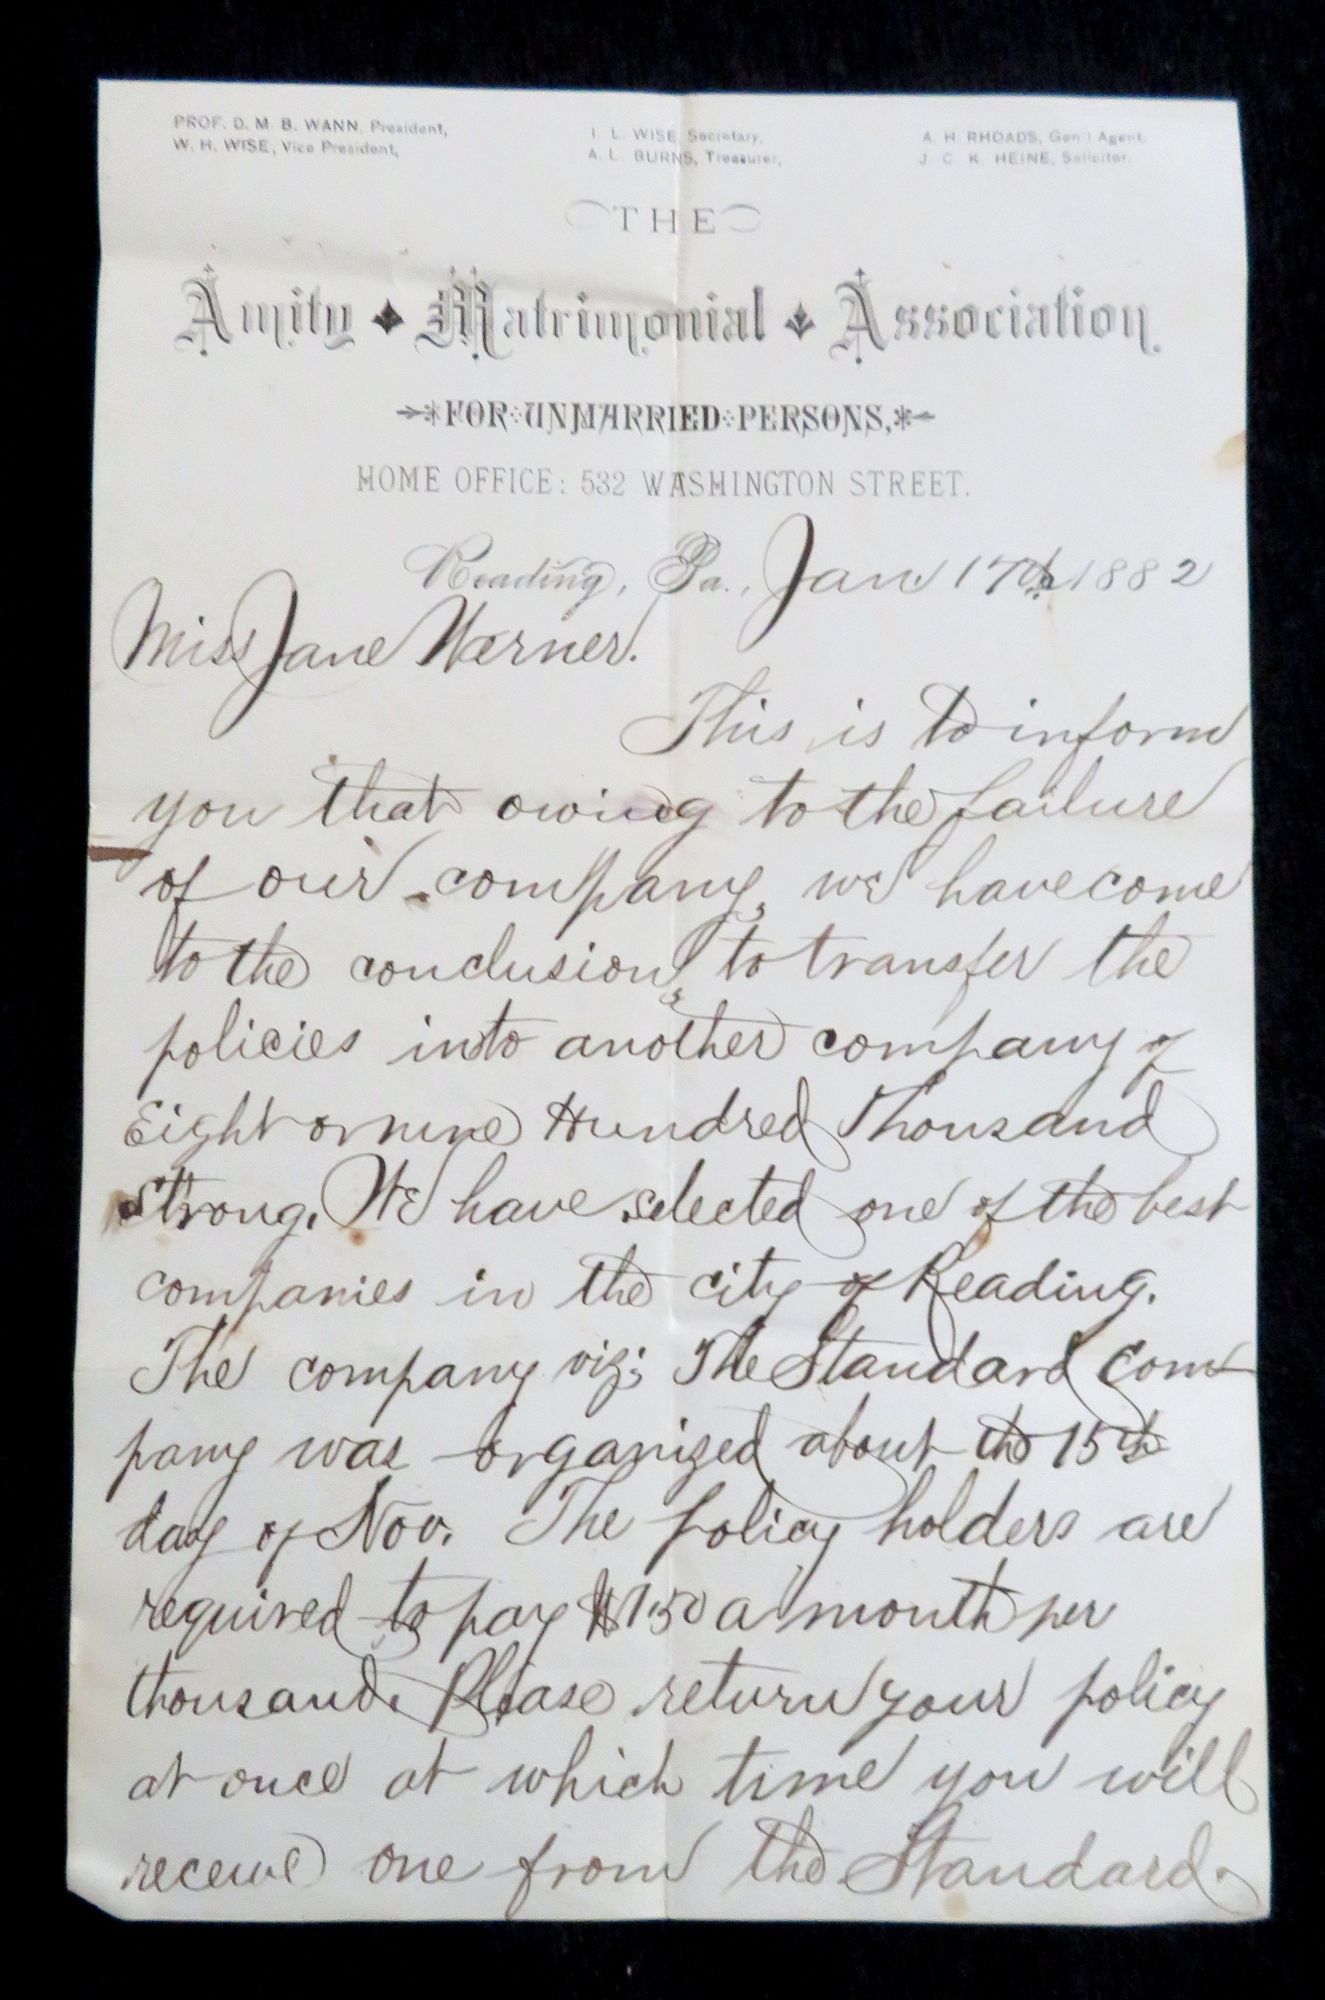 PROF. D. M. B. WANN, President,
W. H. WISE, Vice President,
I. L. WISE, Secretary,
A. L. BURNS, Treasurer,
A. H. RHOADS, Gen'l Agent.
J. C. K. HEINE, Solicitor.
THE
Amity Matrimonial Association.
FOR UNMARRIED PERSONS,
HOME OFFICE: 532 WASHINGTON STREET.
Reading, Pa., Jan 17th 1882
Miss Jane Werner.
This is to inform
you that owing to the failure
of our company, we have come
to the conclusion, to transfer the
policies into another company of
Eight or nine Hundred Thousand
strong. We have selected one of the best
companies in the city of Reading.
The company viz; The Standard Com
pany was organized about the 15th
day of Nov. The policy holders are
required to pay $1.50 a month per
thousand. Please return your policy
at once at which time you will
receive one from the Standard.